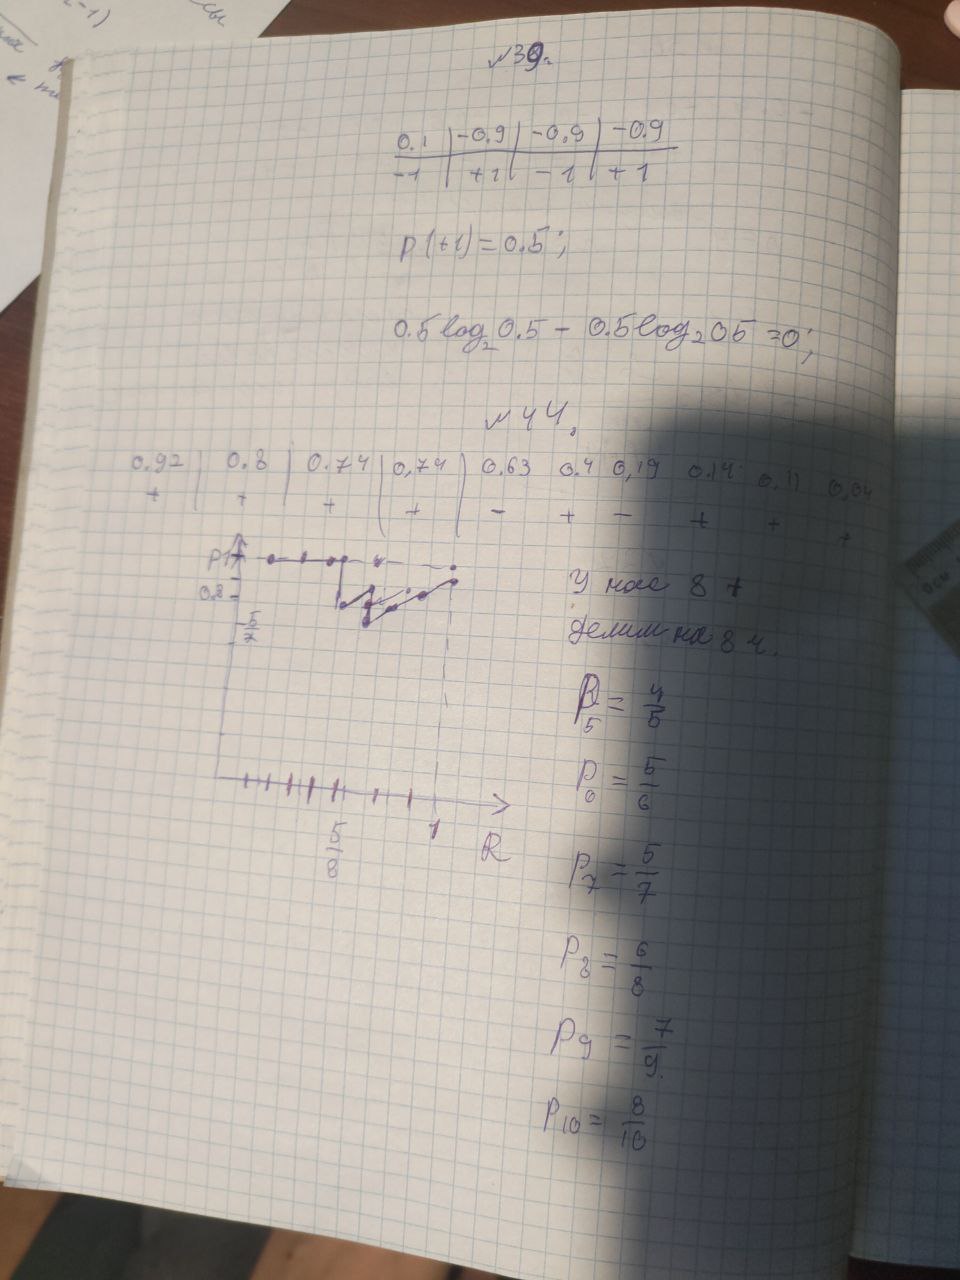 №39.
0.1 | -0.9 | -0.9 | -0.9
-1 | +1 | -1 | +1
P(+1) = 0.5;
0.5log₂0.5 - 0.5log₂05 = 0;
№44.
0.92 | 0.8 | 0.74 | 0,74 | 0.63 0.4 0,19 0.14 0,11 0,04
+ + + + - + - + + +
P 1
0.8
5/7
5/8
1
R
У нас 8 +
делим на 8 ч.
P₅ = 4/5
P₆ = 5/6
P₇ = 5/7
P₈ = 6/8
P₉ = 7/9
P₁₀ = 8/10